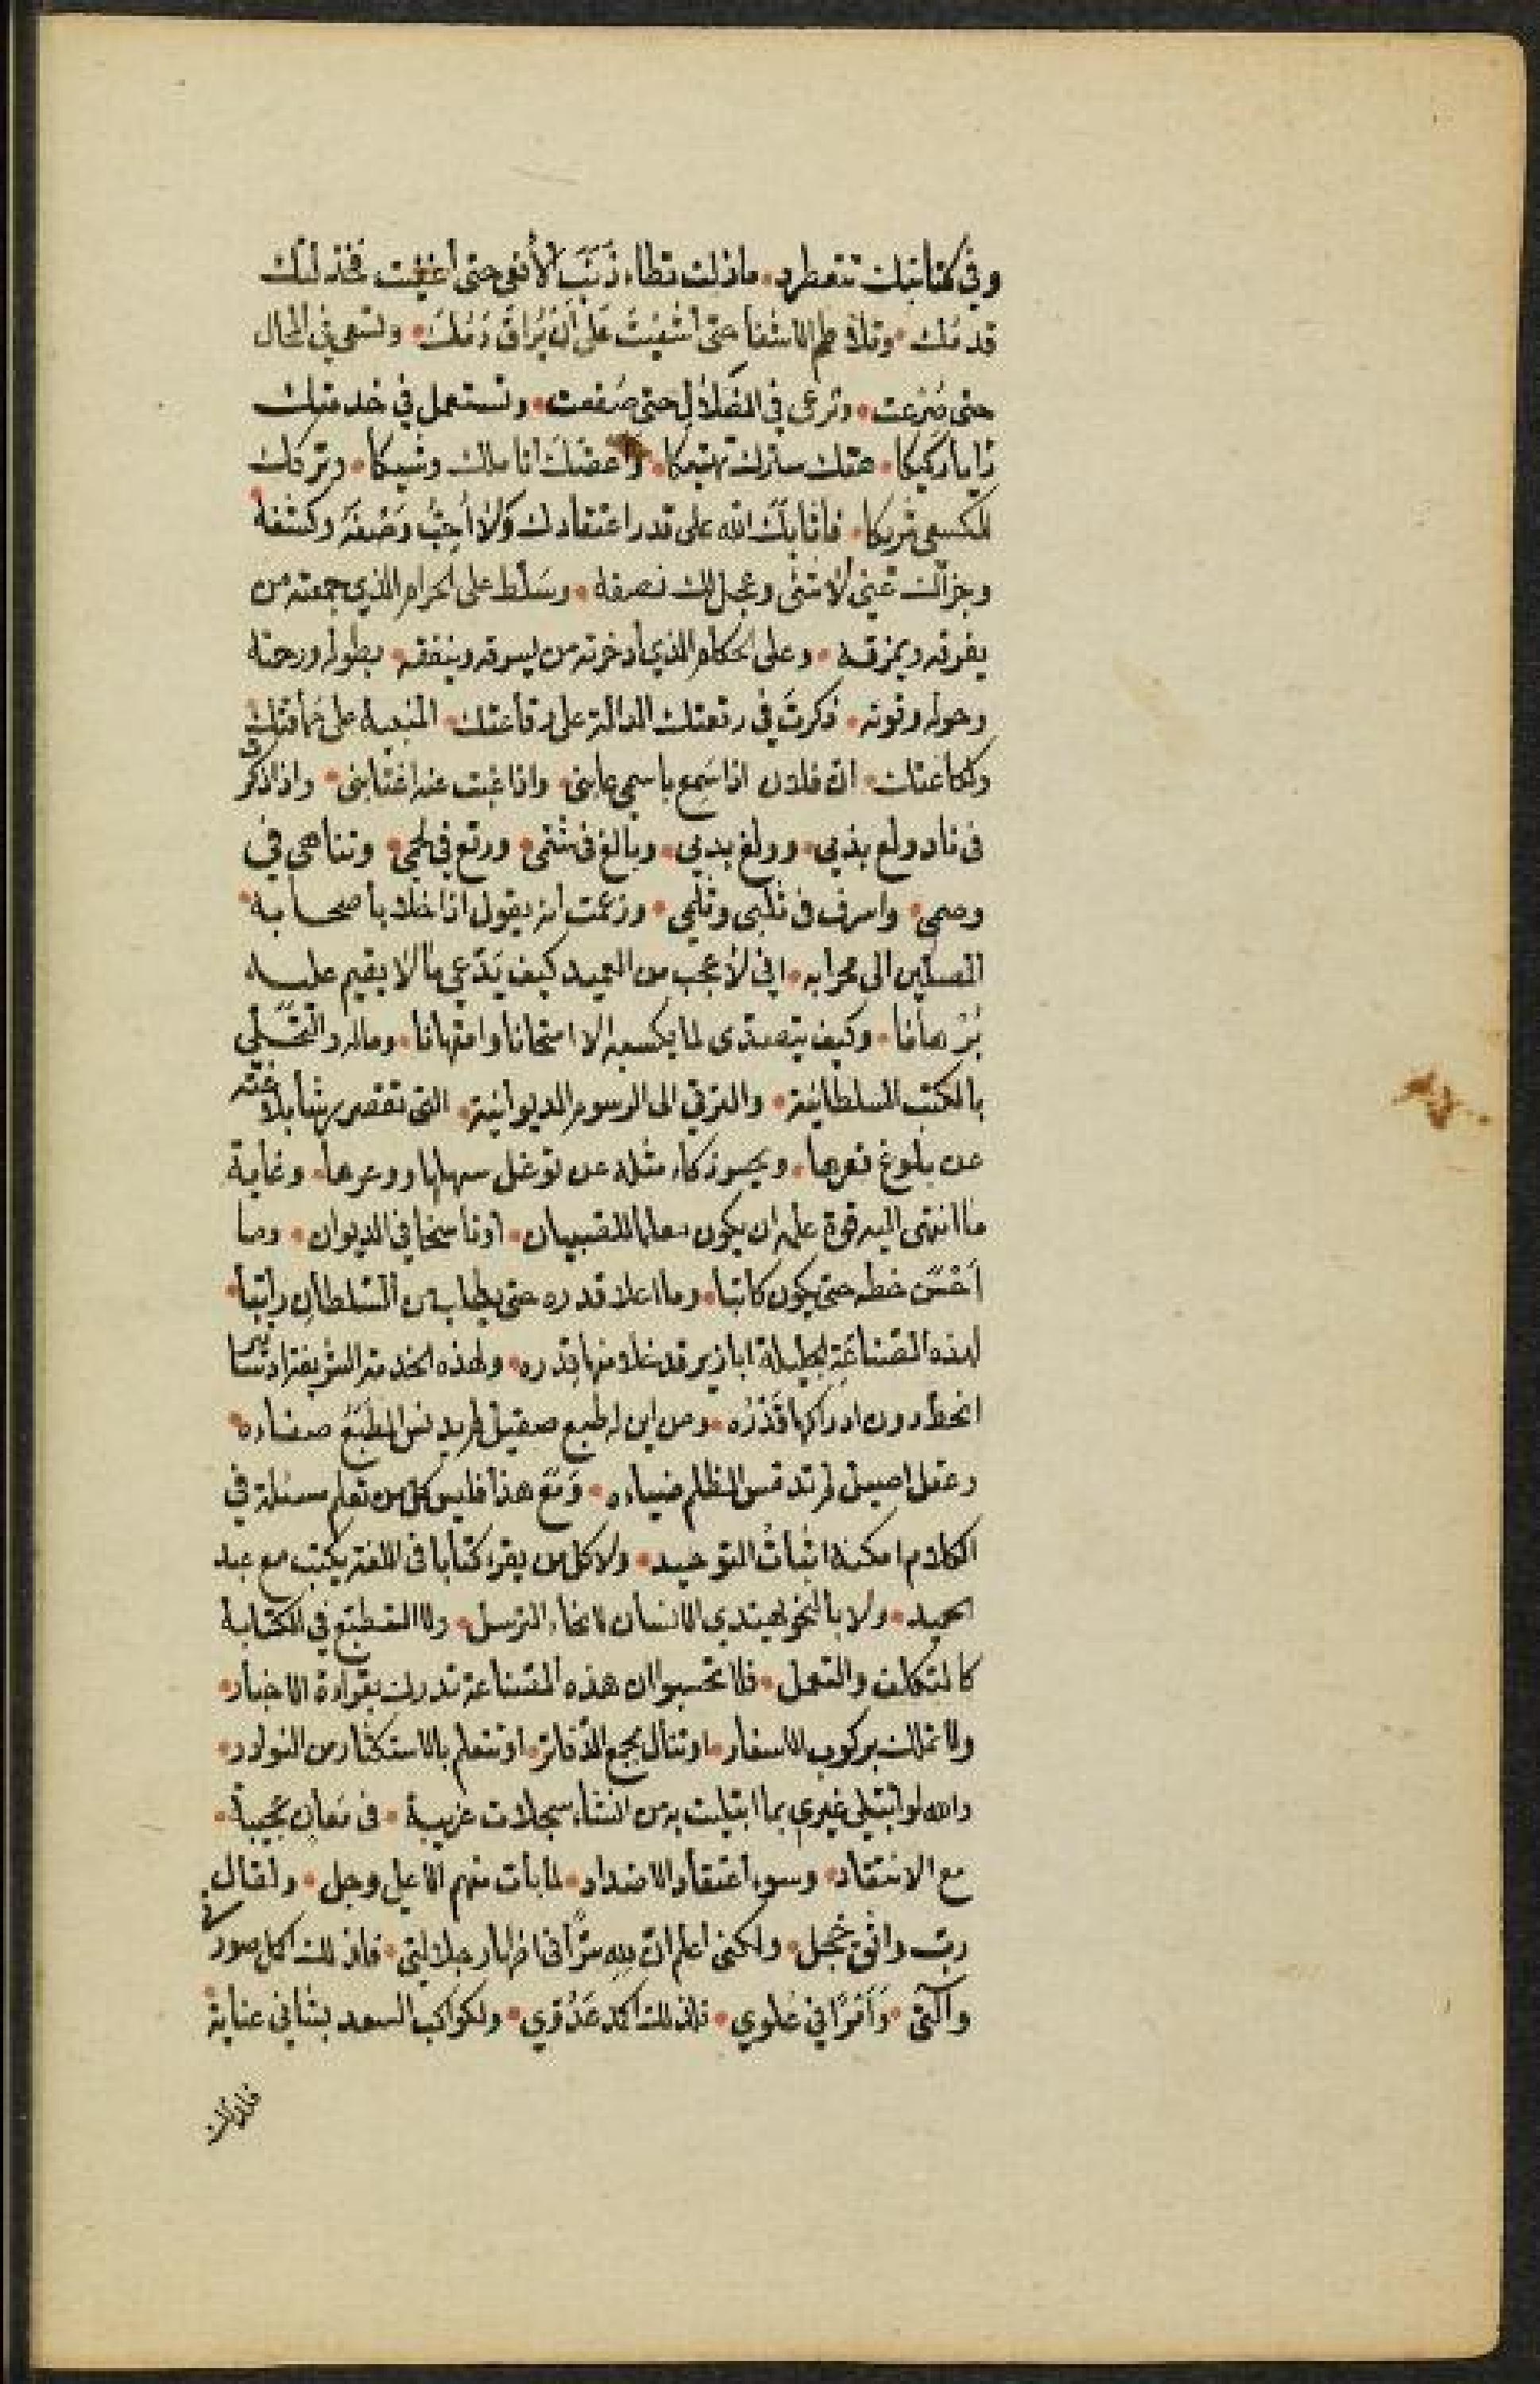 وفي كتابتك تتعطرد • مازلت تطاء ذنب الأفعى حتى أغفت فخذلتك
قدمك • وتلاطم الاشفا حتى أشفيت على أن يراق دمك • وتسعى في المحال
حتى صرعت • وترعى في الضلال حتى صفعت • وتستعمل في خدمتك
رايا ركيكا • هتك ساترك تهتيكا • واعضك اناملك وشيكا • وتركك
للكسعي شريكا • فأثابك الله على قدر اعتقادك ولا أحب وصفه وكشفه •
وجزاك عني الأ نثنى وعجل لك نصرفه • وسلط على الحرام الذي جمعته من
يفرقه ويمزقه • وعلى الحكام الذي أدخرته من يسرقه وينفقه • بطوله ورحمته
وحوله وقوته • ذكرت في رقعتك الدالة على رقاعتك • المنبهة على حماقتك
ولكاعتك • ان فلان اذا سمع باسمي عابني • واذا غبت عنه اغتابني • واذا ذكرت
في ناد ولع بذمي • وولغ بدمي • وبالغ في شتمي • ورتع في لحمي • وتناهى في
وصمي • واسرف في ثلبي وثلمي • وزعمت انه يقول اذا خلا باصحابه •
المصلين الى محرابه • اني لأعجب من العميد كيف يدعي مالا يقيم عليه
برهانا • وكيف يتصدى لما يكسبه الا امتحانا وامتهانا • وماله والتحلي
بالكتب السلطانية • والترقي الى الرسوم الديوانية • التى تقصر رشا بلاغته
عن بلوغ قعرها • ويحسر ذكاء مثله عن توغل سهلها ووعرها • وغاية
ما انتهى اليه قوة علمه ان يكون معلما للصبيان • أو ناسخا في الديوان • وما
أحسن خطه حتى يكون كاتبا • وما اعلا قدره حتى يطلب من السلطان راتبا •
لهذه الصناعة الجليلة ابازير قد خلا منها قدره • ولهذه الخدمة الشريفة ادناسا
انحط دون ادراكها قدره • ومن اين له طبع صقيل لم يدنس الطبع صفاءه •
وعقل اصيل لم تدمس الظلم ضياءه • ومع هذا فليس كل من تعلم مسئلة في
الكلام امكنه اثبات التوحيد • ولا كل من يقرء كتابا في اللغة يكتب مع عبد
الحميد • ولا بالنحو يهتدي الانسان لانحاء الترسل • ولا المتطبع في الكتابة
كالمتكلف والتعمل • فلا تحسبوا ان هذه الصناعة تدرك بقراءة الاخبار •
ولا تملك بركوب الاسفار • او تنال بجمع الدفاتر • او تتعلم بالاستكثار من النوادر •
والله لو ابتلي غيري بما ابتليت به من انشاء سجلات غريبة • في معان عجيبة •
مع الانتقاد • وسوء اعتقاد الاضداد • لما بأت منهم الا على وجل • ولقال
رب واثق خجل • ولكني اعلم ان لله سرا في اظهار جلالتي • فلذلك اكمل صورتي
وآلتي • وأمرا في علوي • فلذلك اكمد عدوي • ولكواكب السعد بشاني عناية •
فلذلك